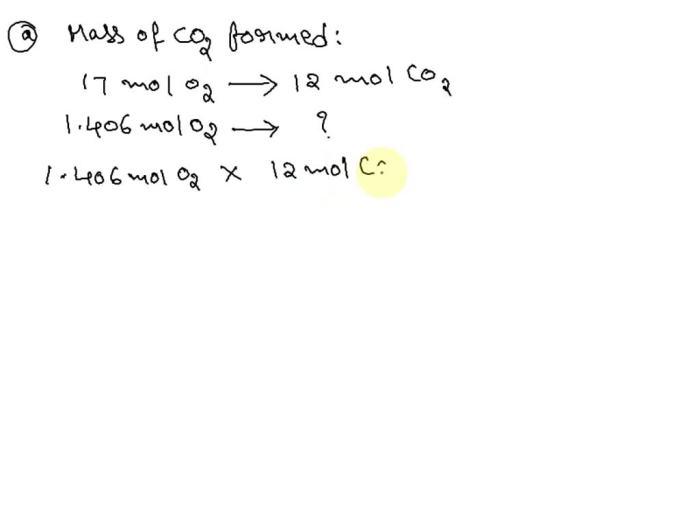 ⓐ Mass of CO₂ formed:
17 mol O₂ → 12 mol CO₂
1.406 mol O₂ → ?
1.406 mol O₂ × 12 mol C